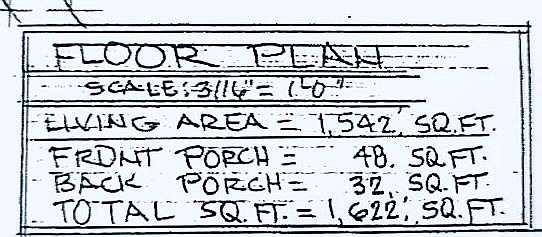 FLOOR PLAN
SCALE: 3/16" = 1'-0"
LIVING AREA = 1,542, SQ.FT.
FRONT PORCH = 48. SQ.FT.
BACK PORCH = 32, SQ.FT.
TOTAL SQ. FT. = 1,622, SQ.FT.